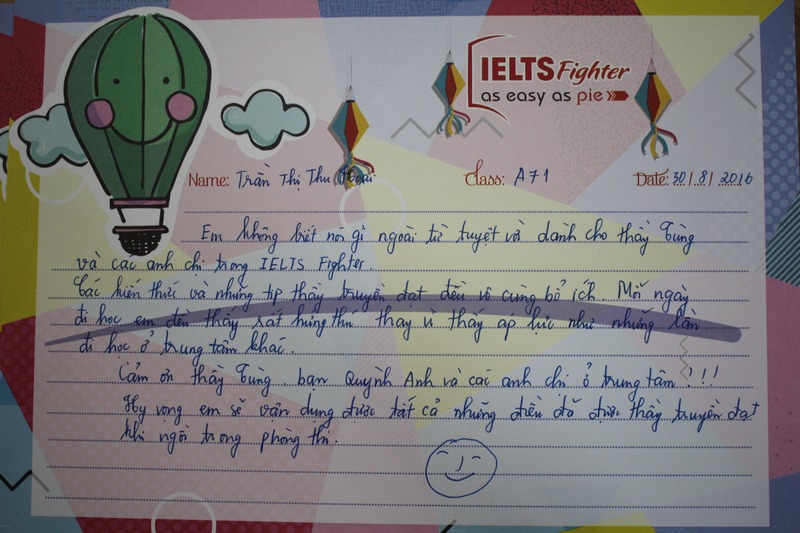 IELTS Fighter
as easy as pie
Name: Trần Thị Thu Hoài Class: A71 Date: 30/8/2016
Em không biết nói gì ngoài từ tuyệt vời dành cho thầy Tùng
và các anh chị trong IELTS Fighter.
Các kiến thức và những tip thầy truyền đạt đều vô cùng bổ ích. Mỗi ngày
đi học em đều thấy rất hứng thú thay vì thấy áp lực như những lần
đi học ở trung tâm khác.
Cảm ơn thầy Tùng, bạn Quỳnh Anh và các anh chị ở trung tâm!!!
Hy vọng em sẽ vận dụng được tất cả những điều đã được thầy truyền đạt
khi ngồi trong phòng thi.